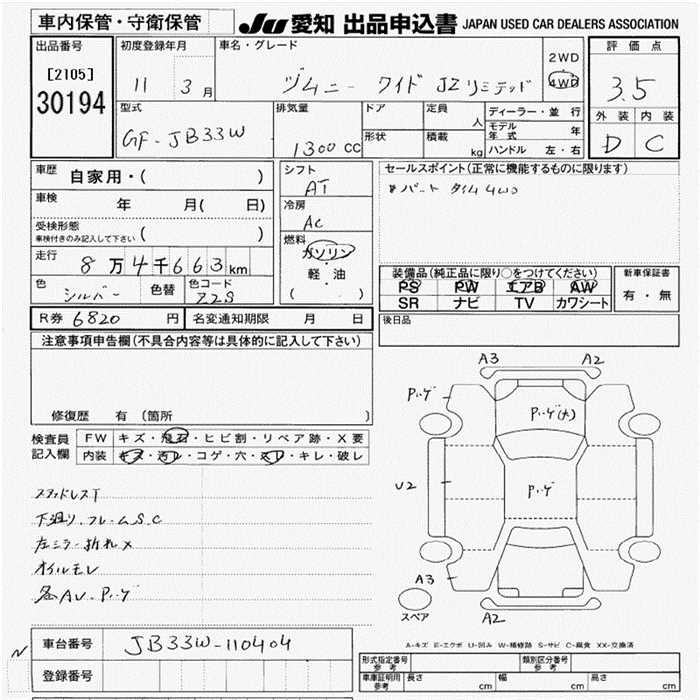 車内保管・守衛保管
JU 愛知 出品申込書 JAPAN USED CAR DEALERS ASSOCIATION
出品番号
[2105]
30194
初度登録年月
11 3月
車名・グレード
ジムニー ワイド JZリミテッド
2WD
4WD
評価点
3.5
外装 内装
D C
型式
GF-JB33W
排気量
1300 CC
ドア
形状
定員
人
積載
kg
ディーラー・並行
モデル年式 年
ハンドル 左・右
車歴
自家用・( )
車検
年 月( 日)
受検形態
車検付きのみ記入して下さい ( )
走行
8万4千663km
色
シルバー
色替
色コード
Z2S
シフト
AT
冷房
AC
燃料
ガソリン
・
軽・油
( )
セールスポイント(正常に機能するものに限ります)
*パートタイム4WD
装備品(純正品に限り○をつけてください)
PS PW エアB AW
SR ナビ TV カワシート
新車保証書
有・無
R券 6820 円
名変通知期限 月 日
後日品
注意事項申告欄(不具合内容等は具体的に記入して下さい)
修復歴 有(箇所 )
検査員記入欄
FW キズ・飛石・ヒビ割・リペア跡・X要
内装 キズ・汚レ・コゲ・穴・スレ・キレ・破レ
スタッドレスT
下廻り、フレームS.C
左ミラー折れ×
オイルモレ
各AU、P.ハゲ
A3 A2
P.ハゲ
P.ハゲ(大)
U2
P.ハゲ
A3
A2
スペア
A-キズ E-エクボ U-凹み W-補修跡 S-サビ C-腐食 XX-交換済
N
車台番号
JB33W-110404
登録番号
形式指定番号 参考
類別区分番号 参考
車庫証明用 参考
長さ cm
幅 cm
高さ cm